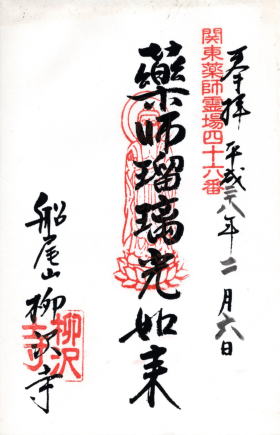 奉拝 平成二八年二月六日
関東薬師霊場四十六番
藥師瑠璃光如来
船尾山柳沢寺
柳沢寺